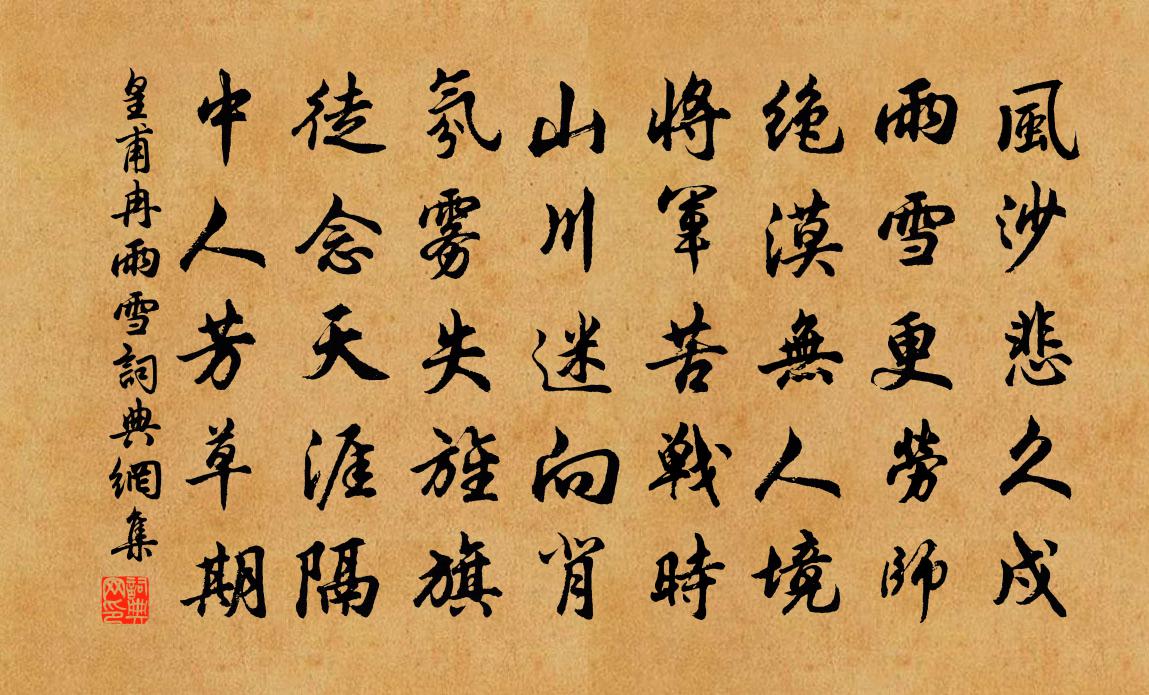 風沙悲久戍
雨雪更勞師
絶漠無人境
將軍苦戰時
山川迷向背
氛霧失旌旗
徒念天涯隔
中人芳草期
皇甫冉雨雪詞典網集
詞典網印